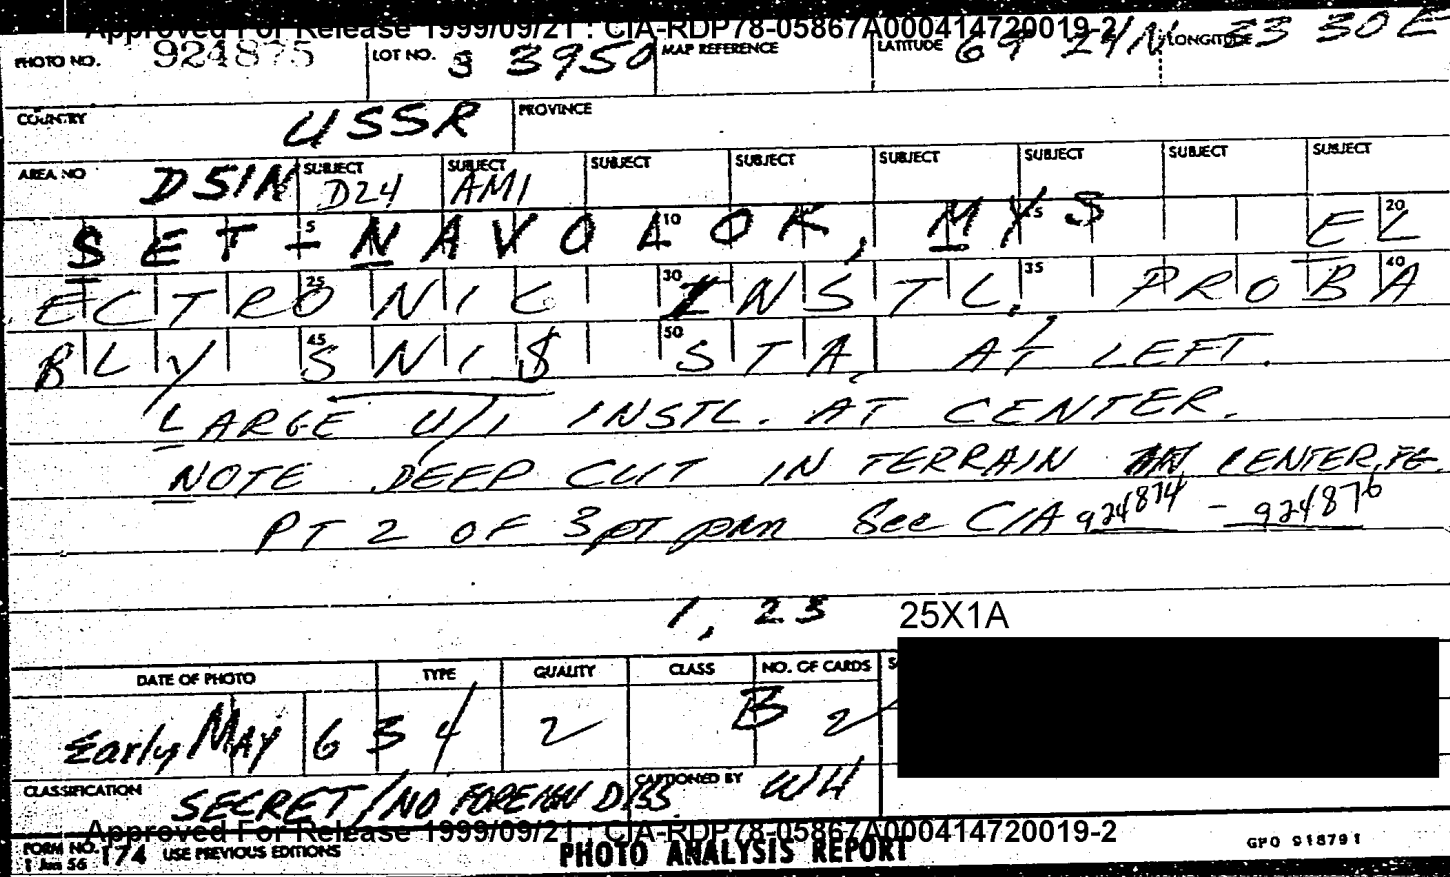 Approved For Release 1999/09/21 : CIA-RDP78-05867A000414720019-2
PHOTO NO. 924875 LOT NO. S 3950 MAP REFERENCE LATITUDE 69 24N LONGITUDE 33 30E
COUNTRY USSR PROVINCE
AREA NO D51N SUBJECT D24 SUBJECT AM1 SUBJECT SUBJECT SUBJECT SUBJECT SUBJECT SUBJECT
SET-NAVOLOK, MYS EL
5 10 15 20
ECTRONIC INSTL, PROBA
25 30 35 40
BLY SNIS STA, AT LEFT.
45 50
LARGE U/I INSTL. AT CENTER.
NOTE DEEP CUT IN TERRAIN AT CENTER, FG.
PT 2 OF 3 PT pan See CIA 924874 - 924876
1, 23 25X1A
DATE OF PHOTO TYPE QUALITY CLASS NO. OF CARDS S
Early MAY 63 4 2 B 2
CLASSIFICATION SECRET/NO FOREIGN DISS. CAPTIONED BY WH
Approved For Release 1999/09/21 : CIA-RDP78-05867A000414720019-2
FORM NO. 174 USE PREVIOUS EDITIONS PHOTO ANALYSIS REPORT GPO 918791
1 Jan 56